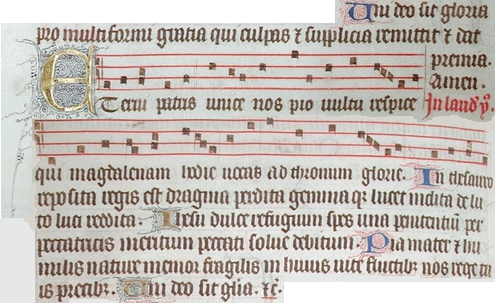 Uni deo sit gloria
pro multiformi gratia qui culpas et supplicia remittit et dat
premia.
Amen.
Eterni patris unice nos pio vultu respice
In laud
qui magdalenam hodie vocas ad thronum glorie. In thesauro
reposita regis est dragma perdita gemmaque lucet inclita de lu
to luci reddita. Iesu dulce refugium spes una penitentium per
peccatricis meritum peccati solve debitum. Pia mater et hu
milis nature memor fragilis in huius vite fluctibus nos rege tu
is precibus. Uni deo sit glia. etc.